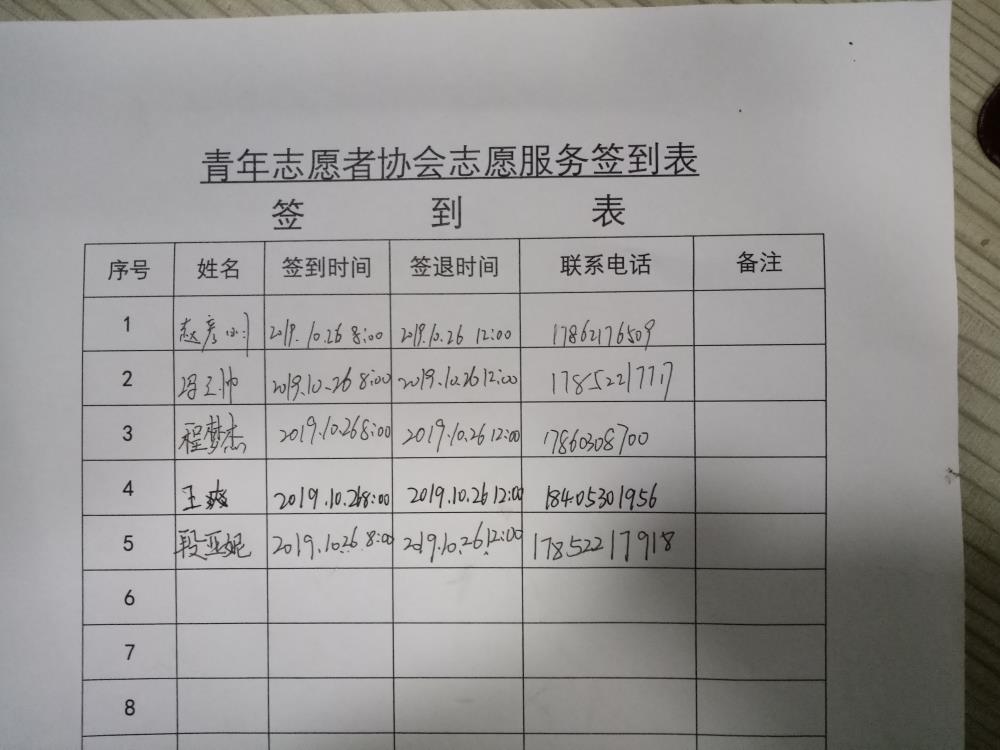 青年志愿者协会志愿服务签到表
签 到 表
序号 姓名 签到时间 签退时间 联系电话 备注
1 赵彦 2019.10.26 8:00 2019.10.26 12:00 17862176509
2 冯立帅 2019.10.26 8:00 2019.10.26 12:00 17852217717
3 程梦杰 2019.10.26 8:00 2019.10.26 12:00 17860308700
4 王爽 2019.10.26 8:00 2019.10.26 12:00 18405301956
5 段亚妮 2019.10.26 8:00 2019.10.26 12:00 17852217918
6
7
8